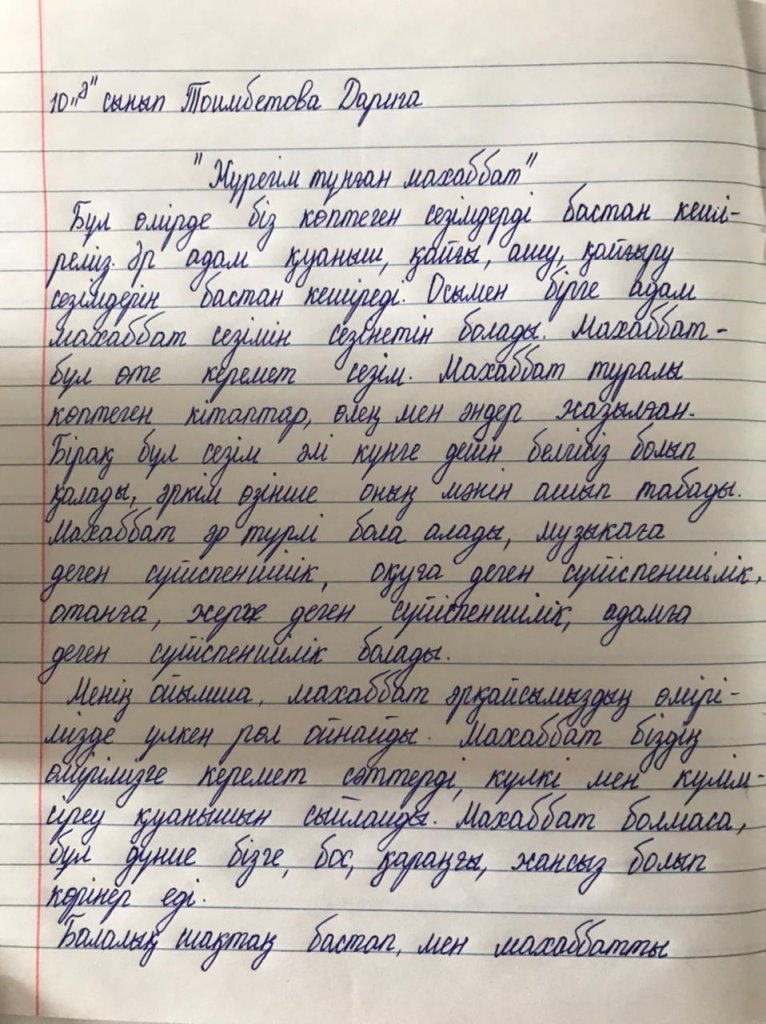 10 "ә" сынып Тоимбетова Дарига
"Жүрегім тұнған махаббат"
Бұл өмірде біз көптеген сезімдерді бастан кеші-
реміз. Әр адам қуаныш, қайғы, ашу, қайғыру
сезімдерін бастан кешіреді. Осымен бірге адам
махаббат сезімін сезінетін болады. Махаббат -
бұл өте керемет сезім. Махаббат туралы
көптеген кітаптар, өлең мен әндер жазылған.
Бірақ бұл сезім әлі күнге дейін белгісіз болып
қалады, әркім өзінше оның мәнін ашып табады.
Махаббат әр түрлі бола алады, музыкаға
деген сүйіспеншілік, оқуға деген сүйіспеншілік,
отанға, жерге деген сүйіспеншілік, адамға
деген сүйіспеншілік болады.
Менің ойымша, махаббат әрқайсымыздың өмірі-
мізде үлкен рөл ойнайды. Махаббат біздің
өмірімізге керемет сәттерді, күлкі мен күлім-
сіреу қуанышын сыйлайды. Махаббат болмаса,
бұл дүние бізге, бос, қараңғы, жансыз болып
көрінер еді.
Балалық шақтаң бастап, мен махаббатты